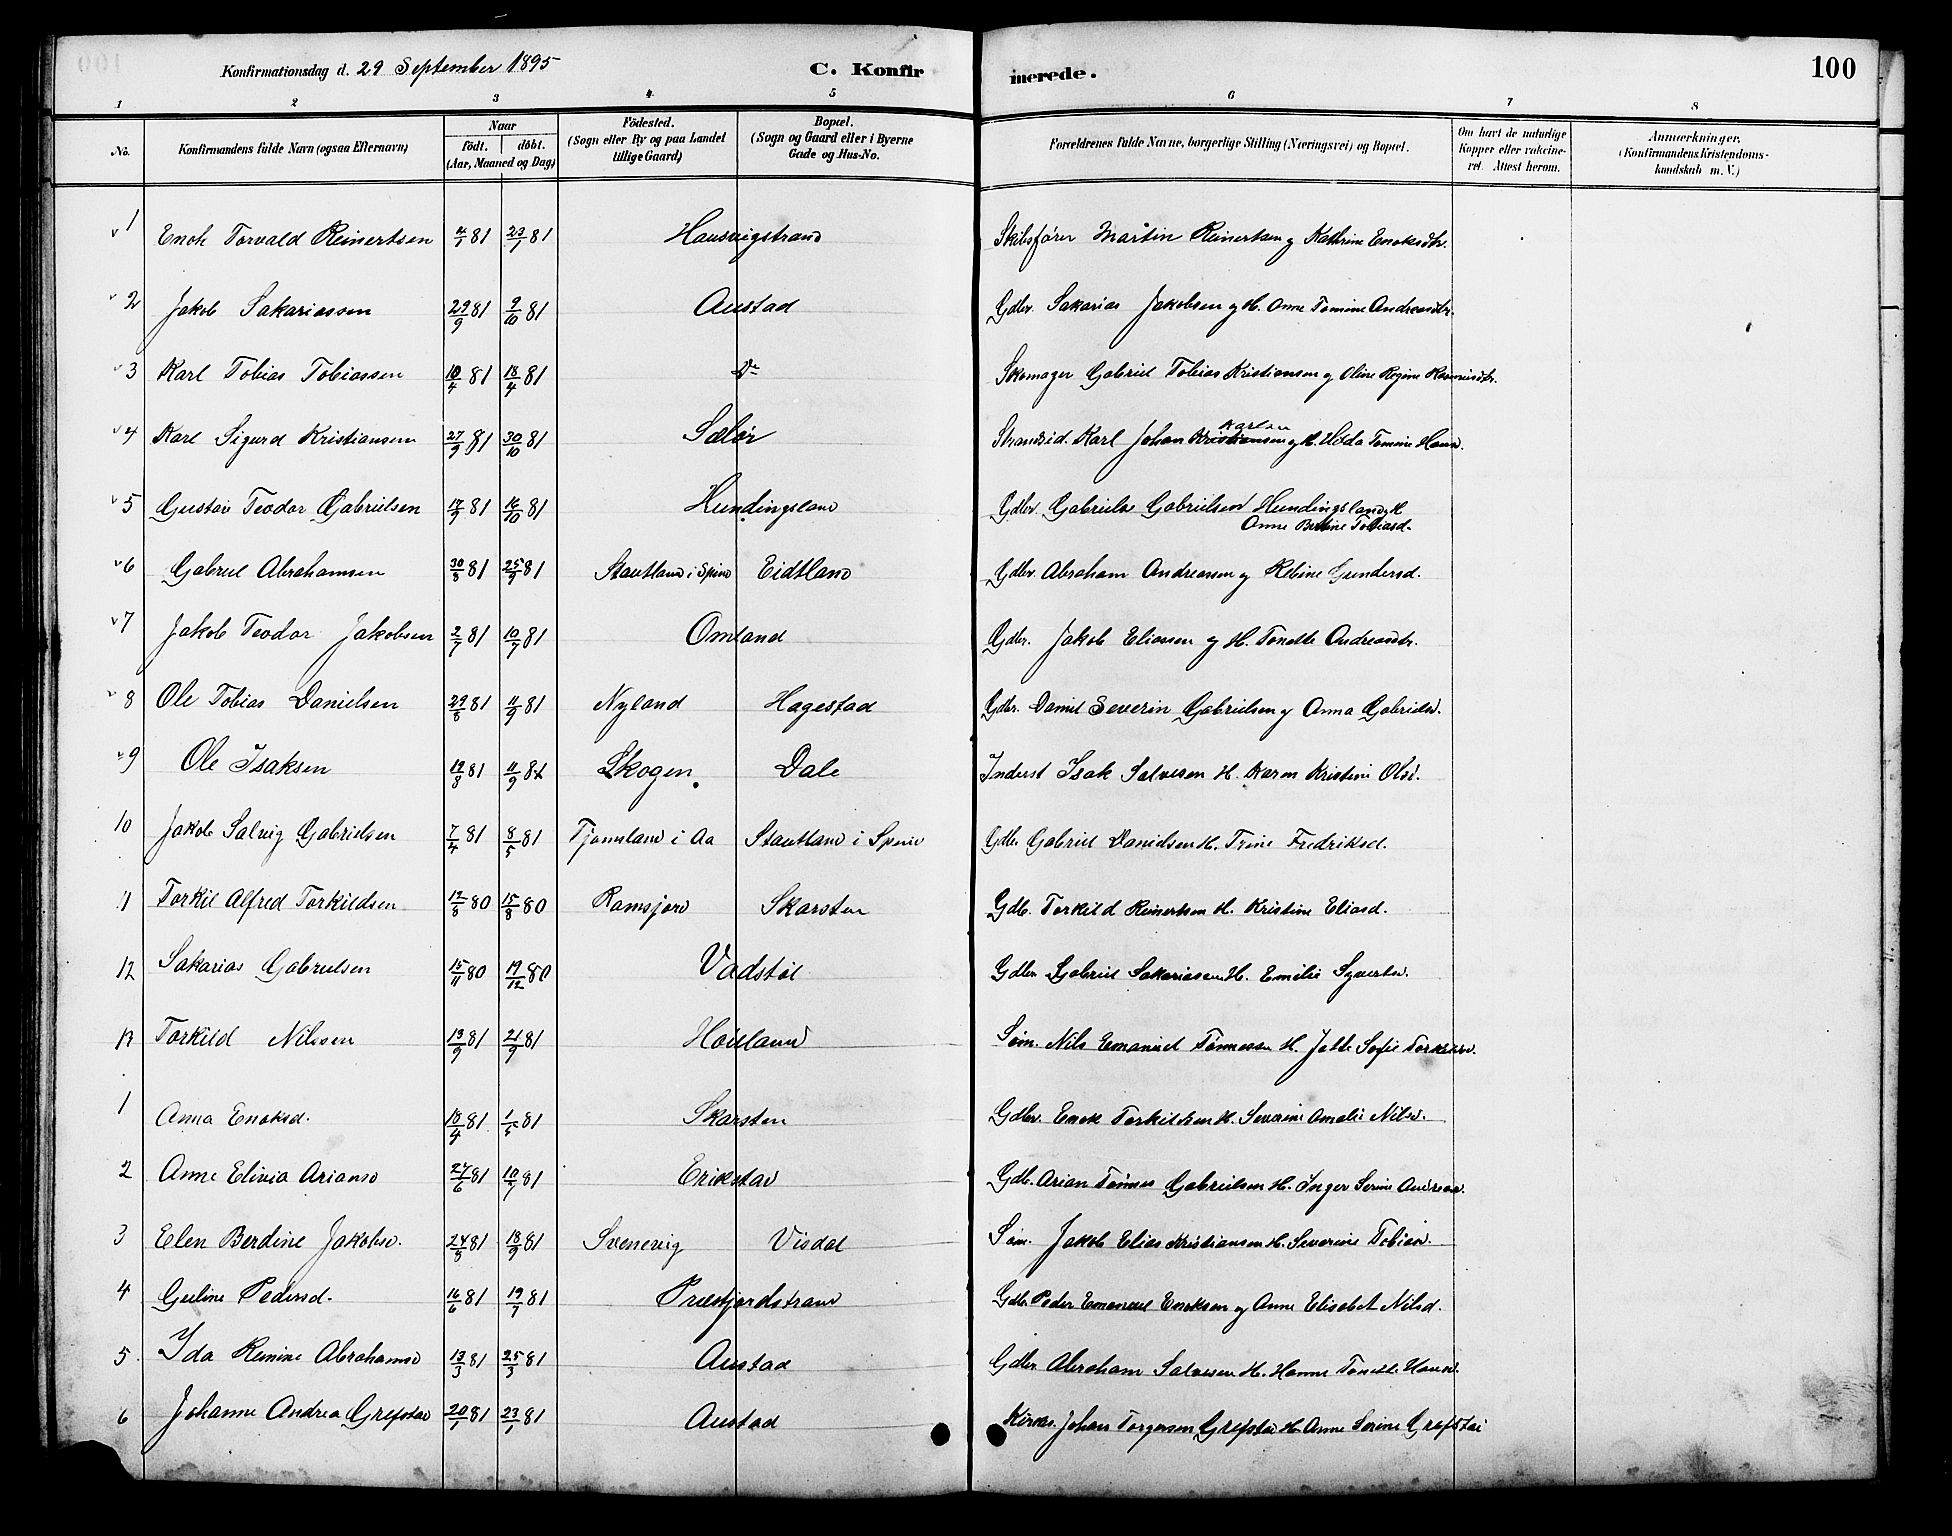 Konfirmationsdag d. 29 September 1895 C. Konfirmerede. 100
1 2 3 4 5 6 7 8
No. Konfirmandens fulde Navn (ogsaa Efternavn) Naar födt. döbt. (Aar, Maaned og Dag) Födested. (Sogn eller By og paa Landet tillige Gaard) Bopæl. (Sogn og Gaard eller i Byerne Gade og Hus-No. Forældrenes fulde Navne, borgerlige Stilling (Næringsvei) og Bopæl. Om havt de naturlige Kopper eller vaccineret. Attest herom. Anmærkninger. (Konfirmandens Kristendomskundskab m. V.)
1 Enok Torvald Reinertsen 4/1 81 23/1 81 Hausvigstrand Skibsfører Martin Reinertsen og Kathrine Enoksdtr.
2 Jakob Sakariassen 29/9 81 9/10 81 Austad Gdbr. Sakarias Jakobsen og H. Anne Tomine Andreasdtr.
3 Karl Tobias Tobiassen 10/4 81 18/4 81 Do Skomager Gabriel Tobias Kristiansen og Oline Regine Rasmusdtr.
4 Karl Sigurd Kristiansen 27/9 81 30/10 81 Sælør Strandsid. Karl Johan Kristiansen Karlsen og H. Hilda Tomine Hansd.
5 Gustav Teodor Gabrielsen 17/9 81 16/10 81 Hundingsland Gdbr. Gabriel Gabrielsen Hundingsland H
Anne Bertine Tobiasd.
6 Gabriel Abrahamsen 30/8 81 25/9 81 Stautland i Spind Eidtland Gdbr. Abraham Andreassen og Rebine Gundersd.
7 Jakob Teodor Jakobsen 2/7 81 10/7 81 Omland Gdbr. Jakob Eliassen og H. Tonette Andreasdtr.
8 Ole Tobias Danielsen 29/8 81 11/9 81 Nyland Hagestad Gdbr. Daniel Severin Gabrielsen og Anna Gabrielsd.
9 Ole Isaksen 19/8 81 11/9 81 Skogen Dale Inderst Isak Salvesen H. Karen Kristine Olsd.
10 Jakob Salvig Gabrielsen 7/4 81 8/5 81 Tjomsland i Aa Stautland i Spind Gdb. Gabriel Danielsen H. Trine Fredriksd.
11 Torkil Alfred Torkildsen 12/8 80 15/8 80 Ramsjord Skarsten Gdb. Torkild Reinertsen H. Kristine Eliasd.
12 Sakarias Gabrielsen 15/11 80 19/12 80 Vadstøl Gdbr. Gabriel Sakariassen H. Emilie Syvertsd.
13 Torkild Nilssen 13/9 81 21/9 81 Høiland Søm. Nils Emanuel Tønnessen H. Jette Sofie Torkildsd.
1 Anna Enoksd. 18/4 81 1/5 81 Skarsten Gdbr. Enok Torkildsen H. Severine Amalie Nilsd.
2 Anne Elivia Ariansd 27/6 81 10/7 81 Erikstad Gdb. Arian Tønnes Gabrielsen H. Inger Serine Andreasd.
3 Elen Berdine Jakobsd. 24/8 81 18/9 81 Svenevig Visdal Søm. Jakob Elias Kristiansen H. Severine Tobiasd.
4 Guline Pedersd. 16/6 81 19/7 81 Præstfjordstrand Gdbr. Peder Emanuel Enoksen og Anne Elisabet Nilsd.
5 Ida Remine Abrahamsd 13/3 81 25/3 81 Austad Gdbr. Abraham Salvesen H. Hanne Tonette Hansd.
6 Johanne Andrea Grefstad 20/1 81 23/1 81 Austad Kirkes. Johan Torgersen Grefstad H. Anne Serine Grefstad